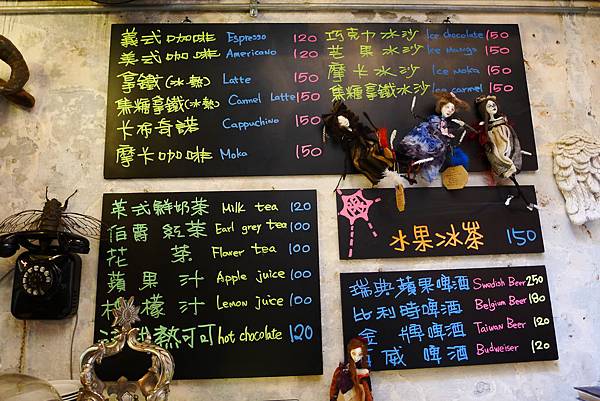 義式咖啡 Espresso 120
美式咖啡 Americano 120
拿鐵(冰熱) Latte 150
焦糖拿鐵(冰熱) Carmel Latte 150
卡布奇諾 Cappuchino 150
摩卡咖啡 Moka 150
巧克力冰沙 Ice chocolate 150
芒果冰沙 Ice Mango 150
摩卡冰沙 Ice Moka 150
焦糖拿鐵冰沙 Ice carmel 150
英式鮮奶茶 Milk tea 120
伯爵紅茶 Earl grey tea 100
花茶 Flower tea 100
蘋果汁 Apple juice 100
檸檬汁 Lemon juice 100
熱可可 hot chocolate 120
水果冰茶 150
瑞典蘋果啤酒 Swedish Beer 250
比利時啤酒 Belgium Beer 180
金牌啤酒 Taiwan Beer 120
威啤酒 Budweiser 120